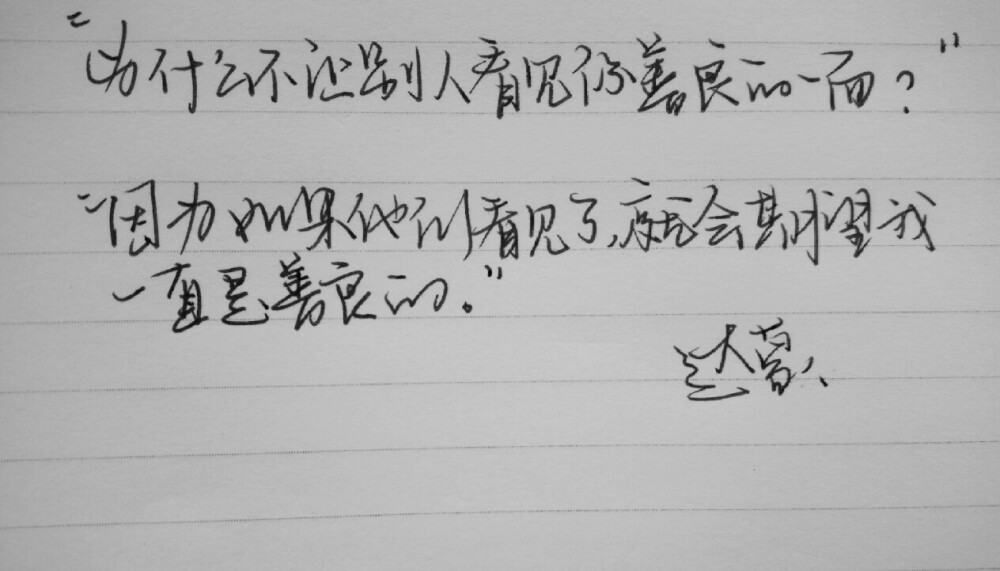 “为什么不让别人看见你善良的一面？”
“因为如果他们看见了,就会期望我
一直是善良的。”